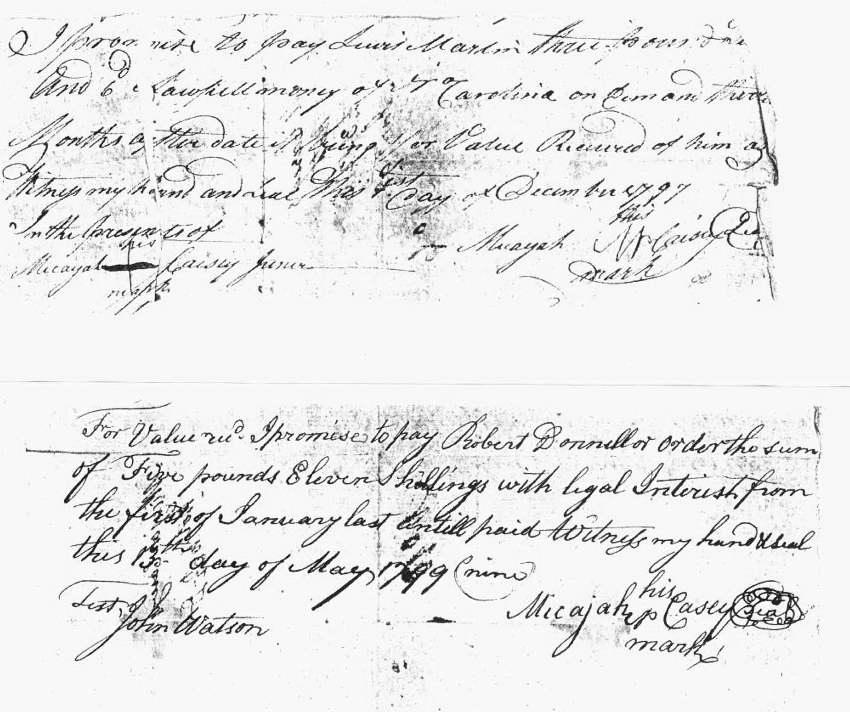 I promise to pay Lewis Martin three pounds
And 6d Lawfull money of No Carolina on Demand three
Months after date it being for Value Received of him as
Witness my hand and Seal this 1st day of December 1797
In the presents of
his
Micayah Caisey Juner
mark
his
Micayah M Caisey Seal
mark
For Value recd. I promise to pay Robert Donnell or order the sum
of Five pounds Eleven Shillings with legal Interest from
the first of January last untill paid Witness my hand & seal
this 13th day of May 1799 (nine)
Test,
John Watson
his
Micajah Casey Seal
mark